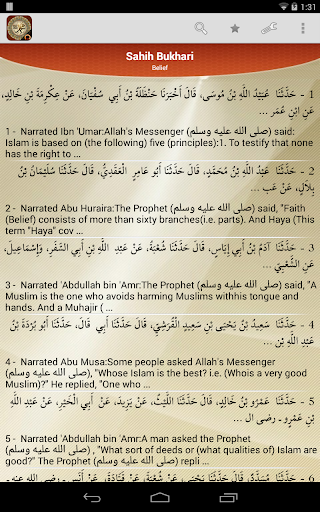 1:31
Sahih Bukhari
Belief
1 - حَدَّثَنَا عُبَيْدُ اللَّهِ بْنُ مُوسَى، قَالَ أَخْبَرَنَا حَنْظَلَةُ بْنُ أَبِي سُفْيَانَ، عَنْ عِكْرِمَةَ بْنِ خَالِدٍ،
عَنِ ابْنِ عُمَر ...
1 - Narrated Ibn 'Umar:Allah's Messenger (صلى الله عليه وسلم) said:
Islam is based on (the following) five (principles):1. To testify that none
has the right to ...
2 - حَدَّثَنَا عَبْدُ اللَّهِ بْنُ مُحَمَّدٍ، قَالَ حَدَّثَنَا أَبُو عَامِرٍ الْعَقَدِيُّ، قَالَ حَدَّثَنَا سُلَيْمَانُ بْنُ
بِلَالٍ، عَنْ عَبْد ...
2 - Narrated Abu Huraira:The Prophet (صلى الله عليه وسلم) said, "Faith
(Belief) consists of more than sixty branches(i.e. parts). And Haya (This
term "Haya" cov ...
3 - حَدَّثَنَا آدَمُ بْنُ أَبِي إِيَاسٍ، قَالَ حَدَّثَنَا شُعْبَةُ، عَنْ عَبْدِ اللَّهِ بْنِ أَبِي السَّفَرِ، وَإِسْمَاعِيلَ،
عَنِ الشَّعْبِيِّ ...
3 - Narrated 'Abdullah bin 'Amr:The Prophet (صلى الله عليه وسلم) said, "A
Muslim is the one who avoids harming Muslims withhis tongue and
hands. And a Muhajir ( ...
4 - حَدَّثَنَا سَعِيدُ بْنُ يَحْيَى بْنِ سَعِيدٍ الْقُرَشِيِّ، قَالَ حَدَّثَنَا أَبِي قَالَ، حَدَّثَنَا أَبُو بُرْدَةَ بْنُ
عَبْدِ ال ...
4 - Narrated Abu Musa:Some people asked Allah's Messenger
(صلى الله عليه وسلم), "Whose Islam is the best? i.e. (Whois a very good
Muslim)?" He replied, "One who ...
5 - حَدَّثَنَا عَمْرُو بْنُ خَالِدٍ، قَالَ حَدَّثَنَا اللَّيْثُ، عَنْ يَزِيدَ، عَنْ أَبِي الْخَيْرِ، عَنْ عَبْدِ اللَّهِ
بْنِ عَمْرٍو ـ رضى ال ...
5 - Narrated 'Abdullah bin 'Amr:A man asked the Prophet
(صلى الله عليه وسلم) , "What sort of deeds or (what qualities of) Islam are
good?" The Prophet (صلى الله عليه وسلم) repli ...
6 - حَدَّثَنَا مُسَدَّدٌ، قَالَ حَدَّثَنَا